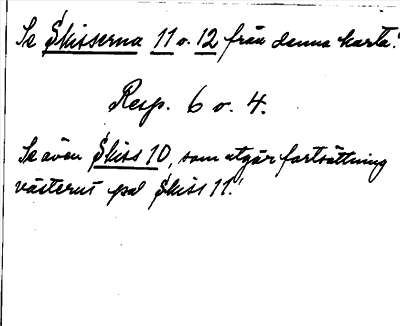 Se Skisserna 11 o. 12 från denna karta!
Resp. 6 o. 4.
Se även Skiss 10, som utgör fortsättning
västerut på Skiss 11!